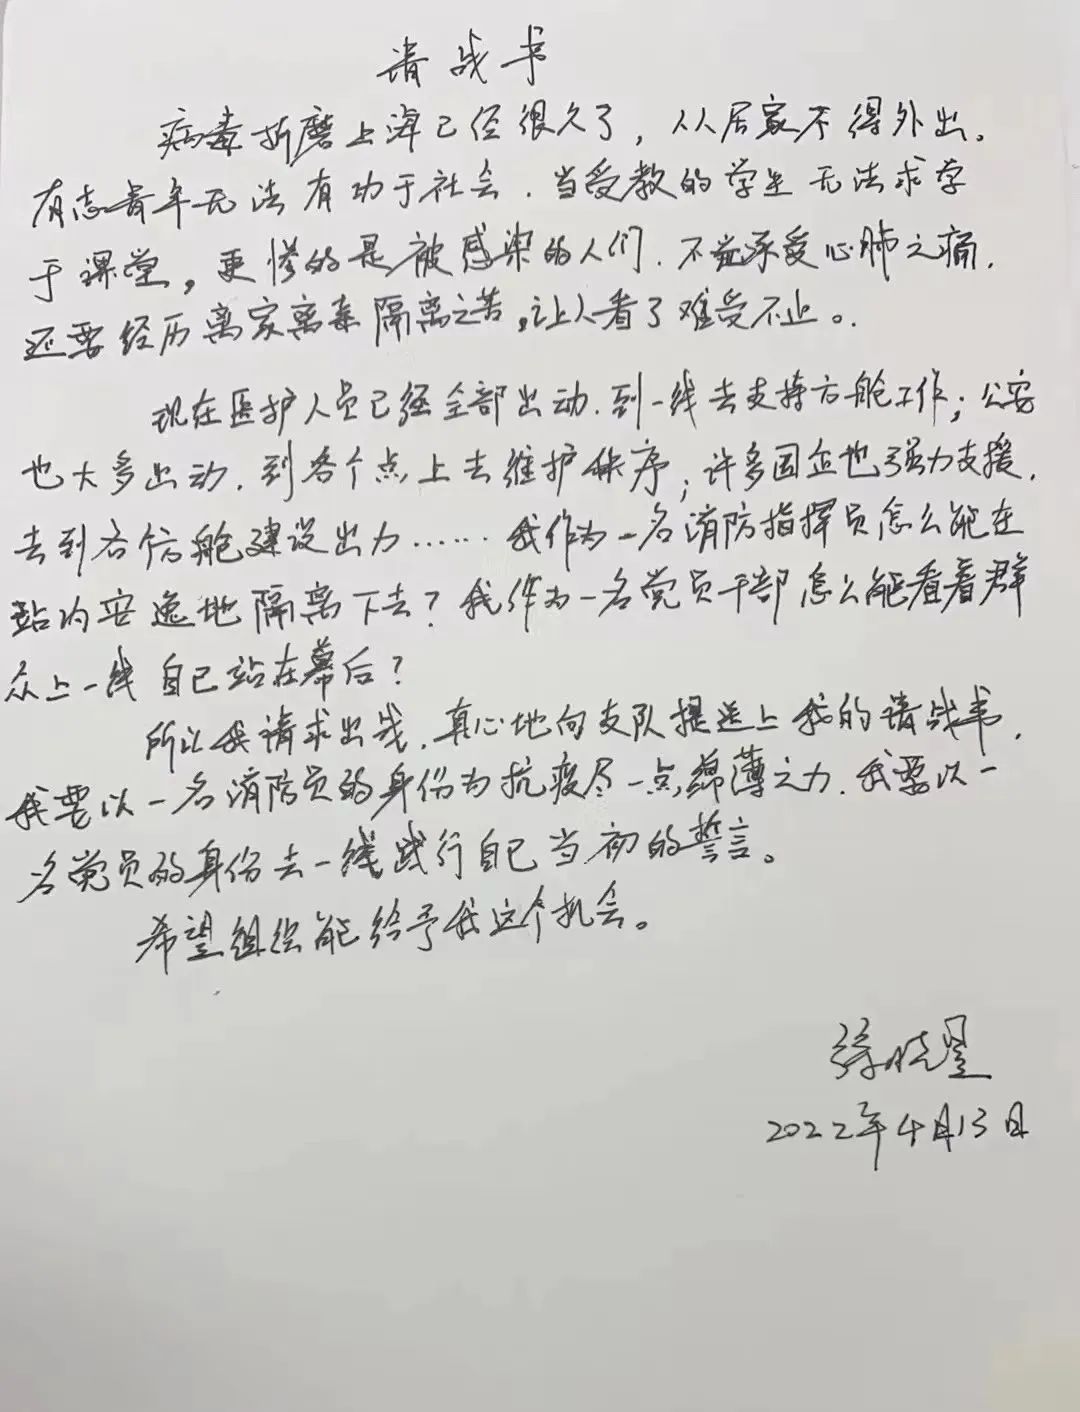 请战书
病毒折磨上海已经很久了，人人居家不得外出。
有志青年无法有功于社会，当受教的学生无法求学
于课堂，更惨的是被感染的人们，不光承受心肺之痛，
还要经历离家离亲隔离之苦，让人看了难受不止。
现在医护人员已经全部出动，到一线去支持方舱工作；公安
也大多出动，到各个点上去维护秩序；许多国企也强力支援，
去到各方舱建设出力……我作为一名消防指挥员怎么能在
站内安逸地隔离下去？我作为一名党员干部怎么能看着群
众上一线自己站在幕后？
所以我请求出战，真心地向支队提送上我的请战书，
我要以一名消防员的身份为抗疫尽一点绵薄之力，我要以一
名党员的身份去一线践行自己当初的誓言。
希望组织能给予我这个机会。
2022年4月13日